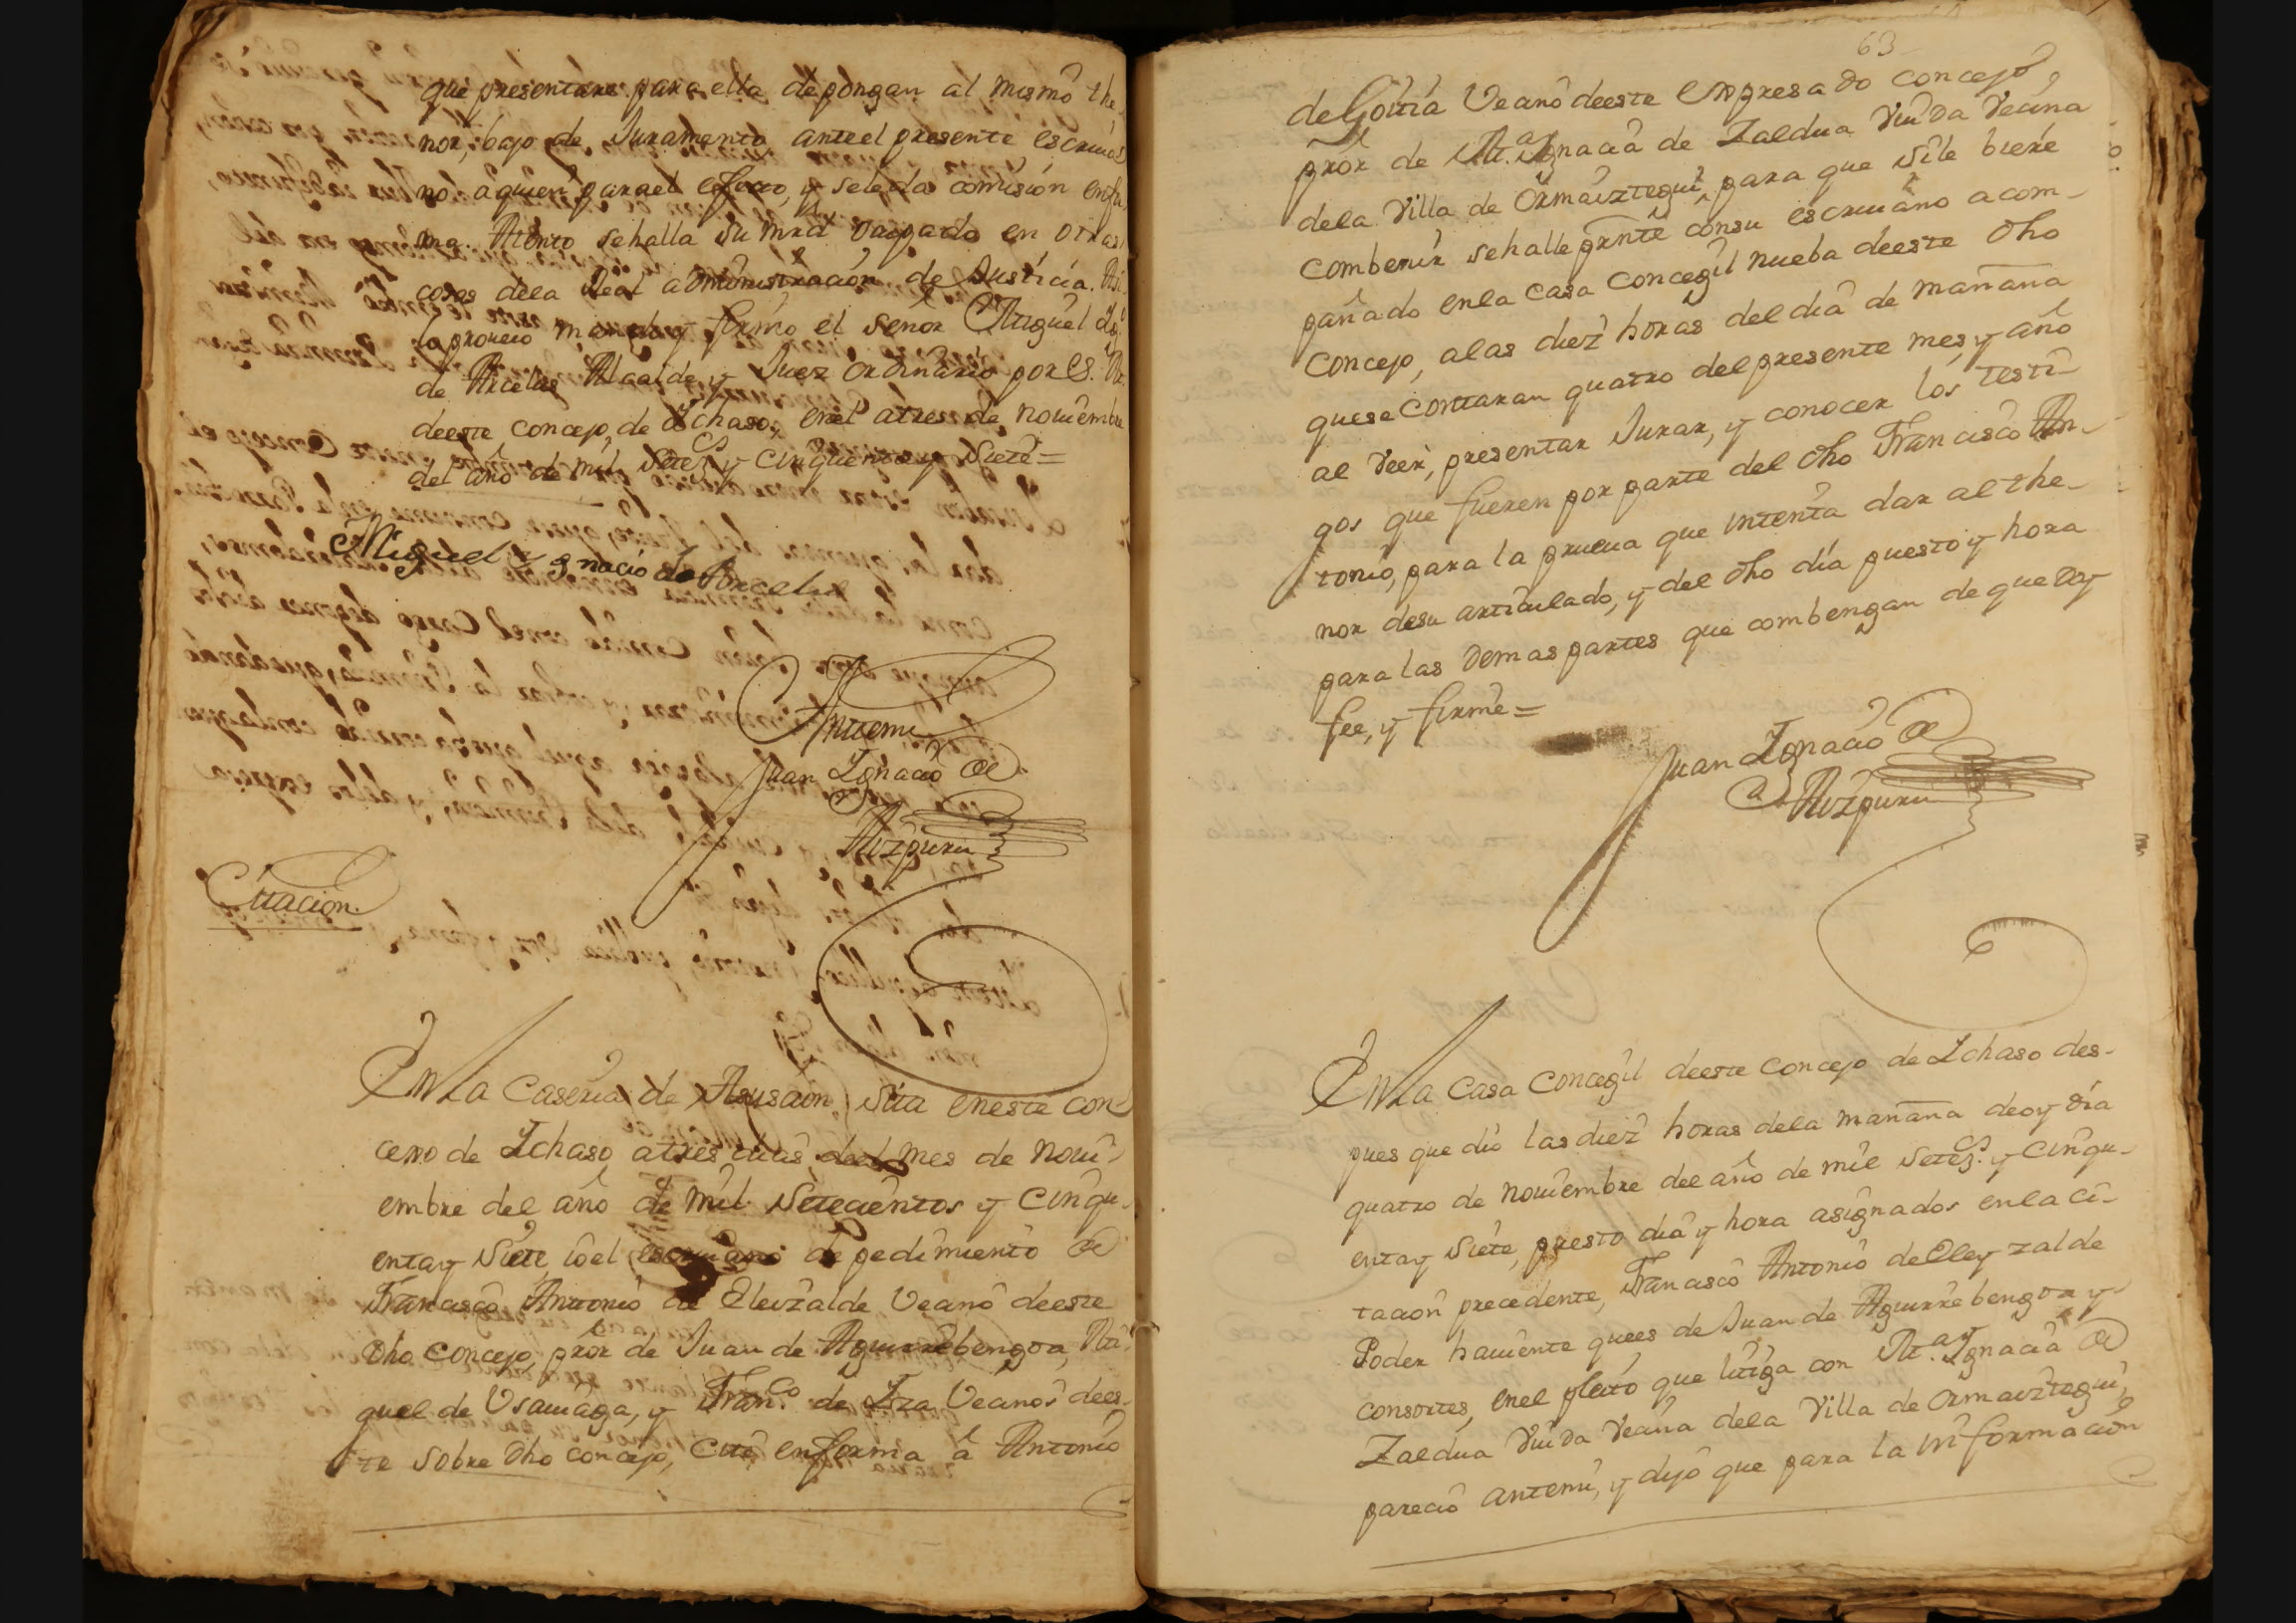 que presentare para ella depongan al mismo the
nor, bajo de Juramento ante el presente escriua
no, aquien para el efecto, y sele da comision enfor
ma. Atento sehalla su mrd ocupado en otras
cosas dela Real administracion de Justicia. Asi
lo proueio mando, y firmo el señor Miguel Ygn.
de Arcelus Alcalde, y Juez ordinario por S. M.
deeste concejo, de Ychaso, enel atres de nouiembre
del año de mil Setez.s y cinquenta y Siete=
Miguel Ygnacio de Arcelus
Antemi
Juan Ignacio de
Aizpuru
Citacion.
En La Caseria de Asusaon, sita eneste con
cejo de Ichaso, atres dias del mes de noui-
embre del año de mil Setecientos y cinqu-
entay Siete, ioel escriuano de pedimiento de
Francisco Antonio de Eleizalde Vecino deeste
dho concejo, pror de Juan de Aguirrebengoa, Mi-
guel de Vsauiaga, y Fran.co de Iza Vecinos dees-
te sobre dho concejo, cite enforma â Antonio
63
de Goitia Vecino deeste expresado concejo,
pror de M.a Ignacia de Zaldua Viuda Vecina
dela Villa de Ormaiztegui, para que sile biere
combenir sehalle prnte consu escriuano acom-
pañado enla casa concegil nueba deeste dho
concejo, alas diez horas del dia de mañana
quese contaran quatro del presente mes, y año
al veer, presentar Jurar, y conocer los testi-
gos que fueren por parte del dho Francisco An-
tonio, para la prueua que intenta dar al the-
nor desu articulado, y del dho dia puesto y hora
para las demas partes que combengan de que doy
fee, y firme=
Juan Ignacio de
Aizpuru
En La Casa Concegil deeste concejo de Ichaso des-
pues que dio las diez horas dela mañana deoy dia
quatro de nouiembre del año de mil Setez.s y cinqu-
entay Siete, puesto dia y hora asignados enla ci-
tacion precedente, Francisco Antonio de Eleyzalde
Poder hauiente quees de Juan de Aguirrebengoa y
consortes, enel pleito que litiga con M.a Ignacia de
Zaldua Viuda Vecina dela Villa de Ormaiztegui,
parecio antemi, y dijo que para la informacion